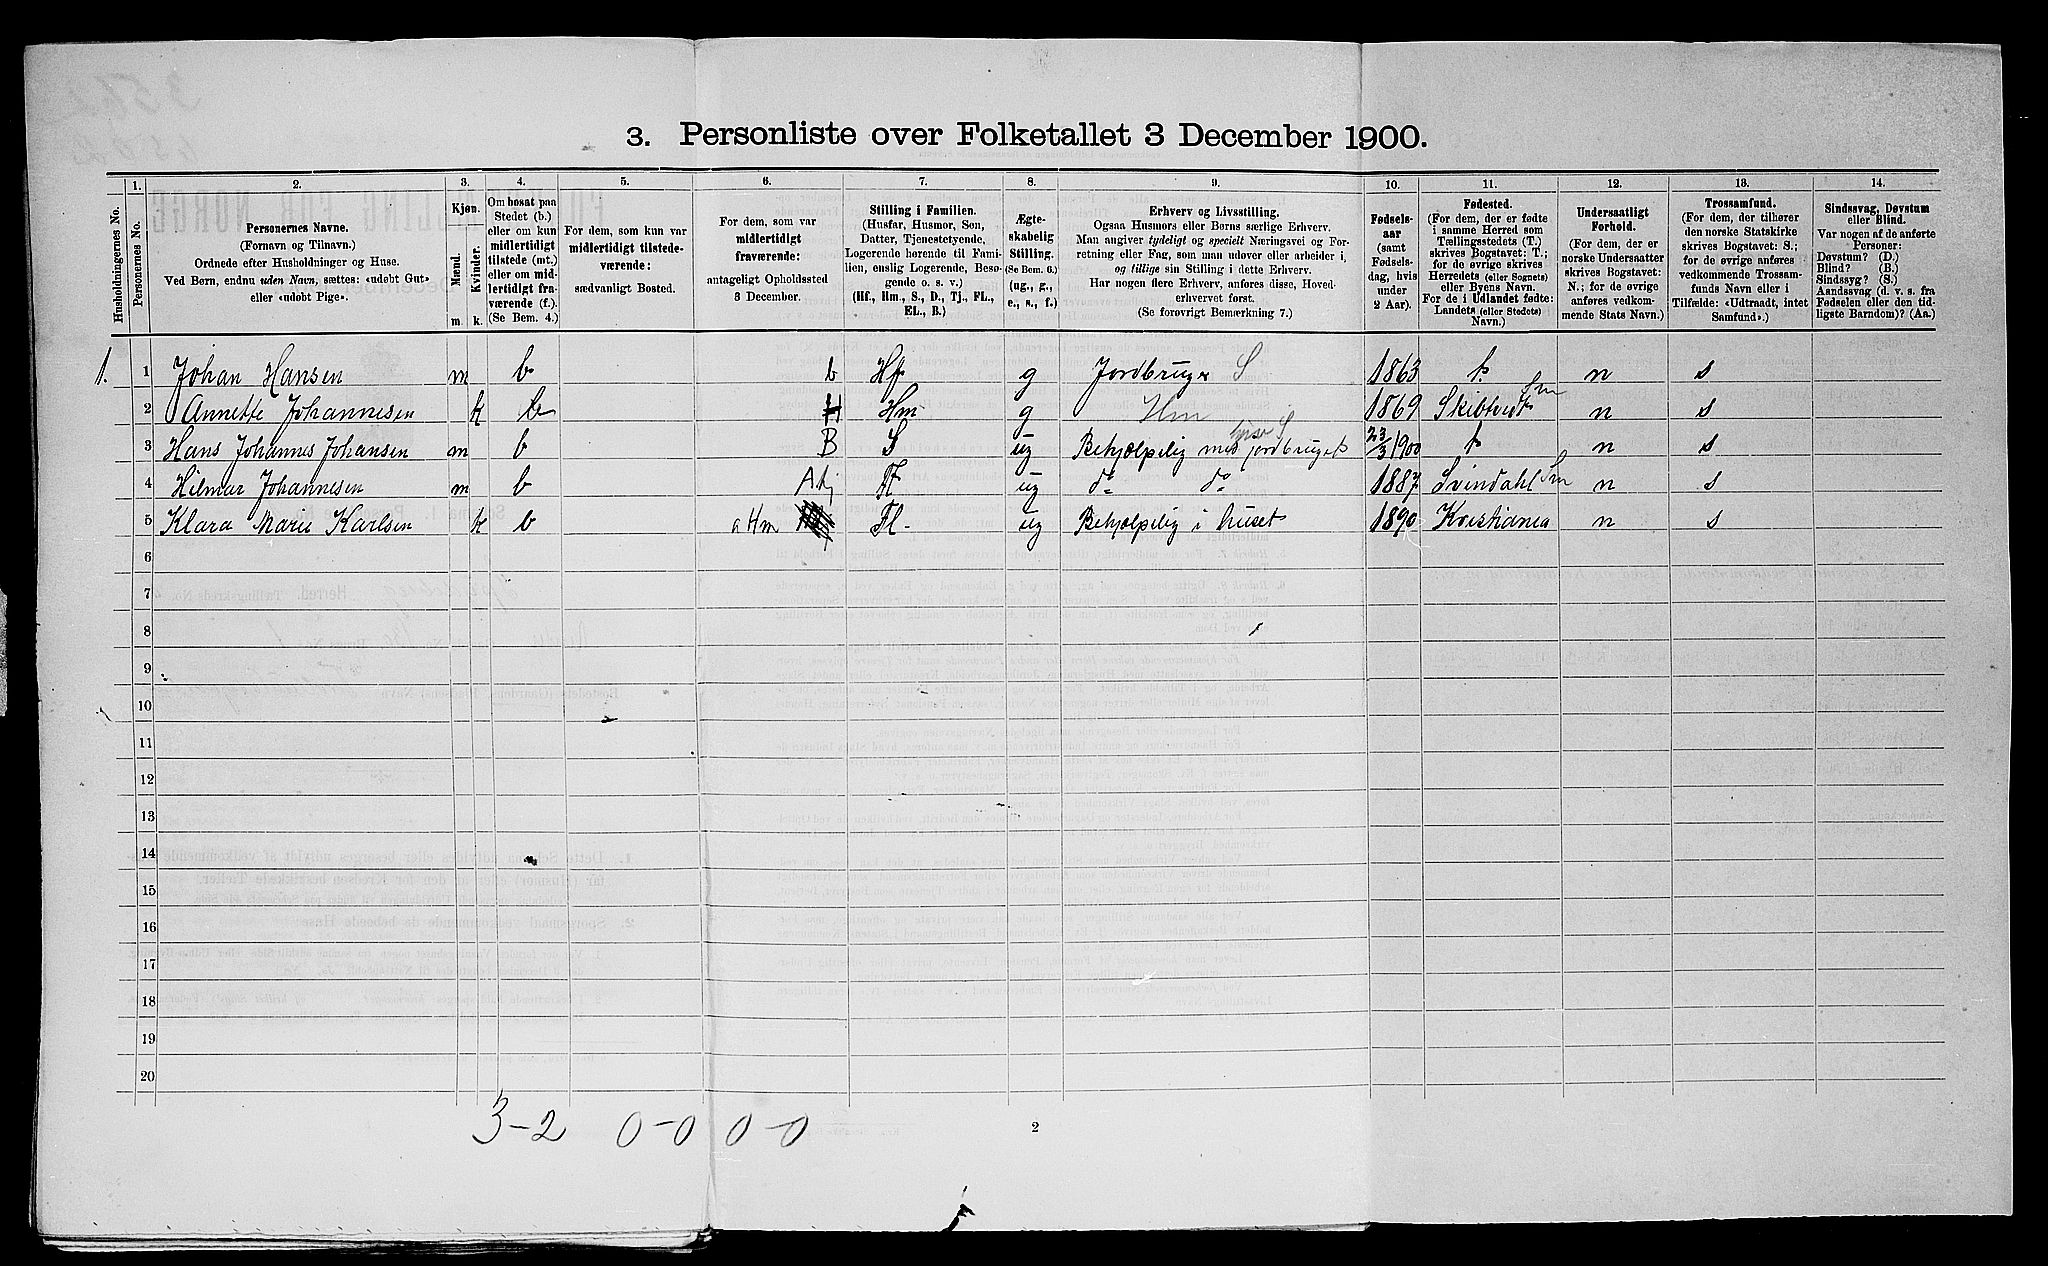 3. Personliste over Folketallet 3 December 1900.
1. 2. 3. 4. 5. 6. 7. 8. 9. 10. 11. 12. 13. 14.
Husholdningernes No.
Personernes No.
Personernes Navne.
(Fornavn og Tilnavn.)
Ordnede efter Husholdninger og Huse.
Ved Børn, endnu uden Navn, sættes: «udøbt Gut»
eller «udøbt Pige».
Kjøn.
Mænd.
Kvinder.
m. k.
Om bosat paa
Stedet (b.)
eller om kun
midlertidigt
tilstede (mt.)
eller om mid-
lertidigt fra-
værende (f.).
(Se Bem. 4.)
For dem, som kun var
midlertidigt tilstede-
værende:
sædvanligt Bosted.
For dem, som var
midlertidigt
fraværende:
antageligt Opholdssted
3 December.
Stilling i Familien.
(Husfar, Husmor, Søn,
Datter, Tjenestetyende,
Logerende hørende til Fami-
lien, enslig Logerende, Besø-
gende o. s. v.)
(Hf., Hm., S., D., Tj., FL.,
EL., B.)
Ægte-
skabelig
Stilling.
(Se Bem. 6.)
(ug., g.,
e., s., f.)
Erhverv og Livsstilling.
Ogsaa Husmors eller Børns særlige Erhverv.
Man angiver tydeligt og specielt Næringsvei og For-
retning eller Fag, som man udøver eller arbeider i,
og tillige sin Stilling i dette Erhverv.
Har nogen flere Erhverv, anføres disse, Hoved-
erhvervet først.
(Se forøvrigt Bemærkning 7.)
Fødsels-
aar
(samt
Fødsels-
dag, hvis
under
2 Aar).
Fødested.
(For dem, der er fødte
i samme Herred som
Tællingsstedets (T.)
skrives Bogstavet: T.;
for de øvrige skrives
Herredets (eller Sognets)
eller Byens Navn.
For de i Udlandet fødte:
Landets (eller Stedets)
Navn.)
Undersaatligt
Forhold.
(For dem, der er
norske Undersaatter
skrives Bogstavet:
N.; for de øvrige
anføres vedkom-
mende Stats Navn.)
Trossamfund.
(For dem, der tilhører
den norske Statskirke
skrives Bogstavet: S.;
for de øvrige anføres
vedkommende Trossam-
funds Navn eller i
Tilfælde: «Udtraadt, intet
Samfund».)
Sindssvag, Døvstum
eller Blind.
Var nogen af de anførte
Personer:
Døvstum? (D.)
Blind? (B.)
Sindssyg? (S.)
Aandssvag (d. v. s. fra
Fødselen eller den tid-
ligste Barndom)? (Aa.)
1. 1 Johan Hansen m b b Hf g Jordbruger S 1863 t. n s
2 Annette Johannesen k b H Hm g Hm 1869 Skibtvedt Sm n s
3 Hans Johannes Johansen m b B S ug Behjælpelig med jordbruget S 23/3 1900 t n s
4 Hilmar Johannesen m b A tj Fl ug do do 1887 Svindahl Sm n s
5 Klara Marie Karlsen k b a Hm Fl. ug Behjælpelig i huset 1890 Kristiania n s
6
7
8
9
10
11
12
13
14
15
16
17
18
19
20
3-2 0-0 0-0
2